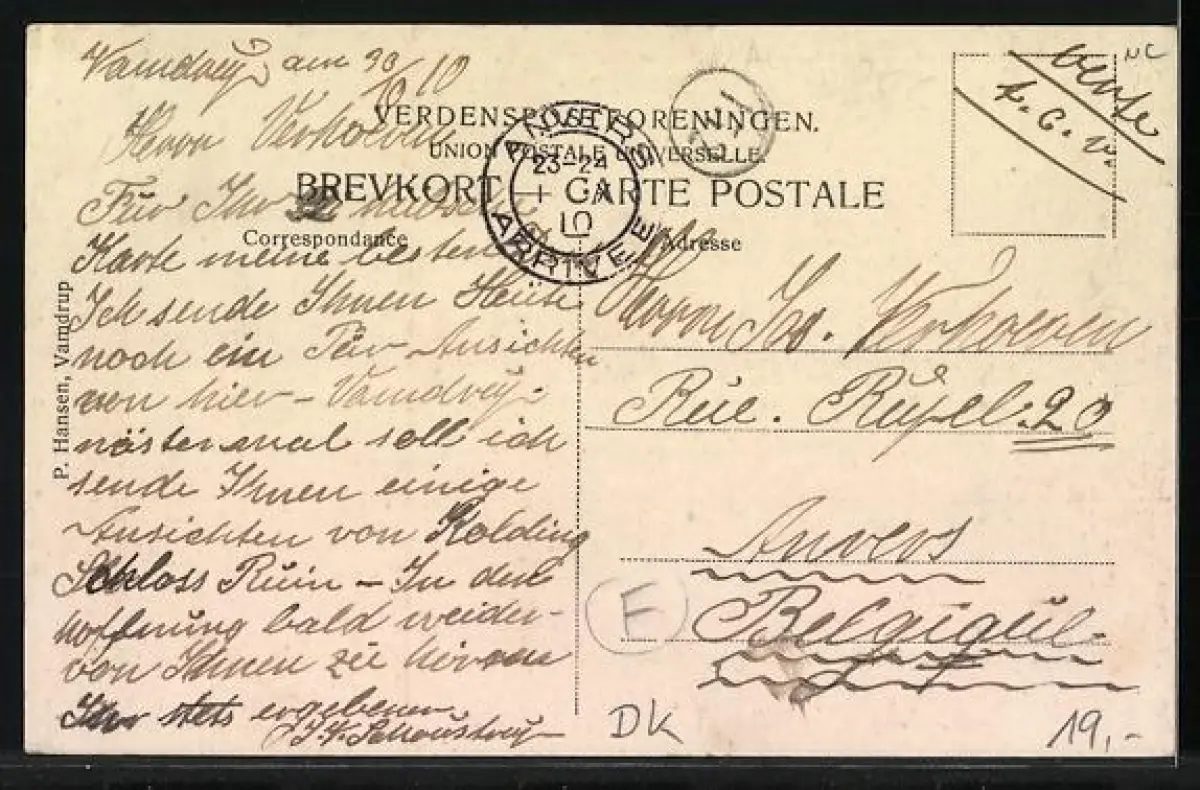 Vamdrup am 30/
10
Herrn Verhoeven
VERDENSPOSTFORENINGEN.
UNION POSTALE UNIVERSELLE.
BREVKORT — CARTE POSTALE
Correspondance
Adresse
ANVERS
23-24
10
ARRIVEE
verte
t. c. v.
NC
Für Ihr
Karte meine besten
Ich sende Ihnen
noch ein Par Ansichten
von hier – Vamdrup.
nästenmal soll ich
sende Ihnen einige
Ansichten von Kolding
Schloss Ruin – In der
Hoffnung bald weider
von Ihnen zu hören
Ihr stets ergebener
P. Hansen, Vamdrup
Herrn Jos. Verhoeven
Rue. Rupel. 20
Anvers
Belgique.
F
DK
19,-